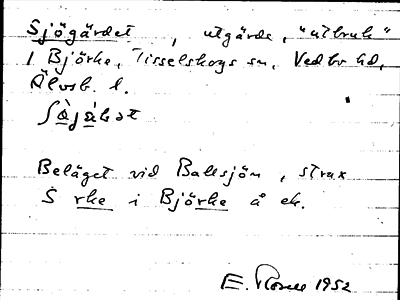 Sjögärdet, utgärde, "utbruk"
i Björke, Tisselskogs sn, Vedbo hd,
Älvsb. l.
Beläget vid Ballsjön, strax
S rke i Björke å ek.
E. Rosell 1952